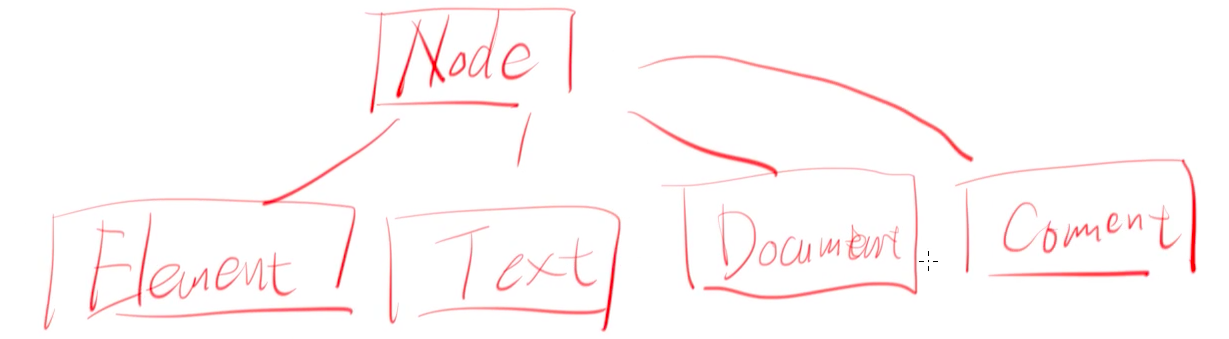 Node
Element
Text
Document
Coment